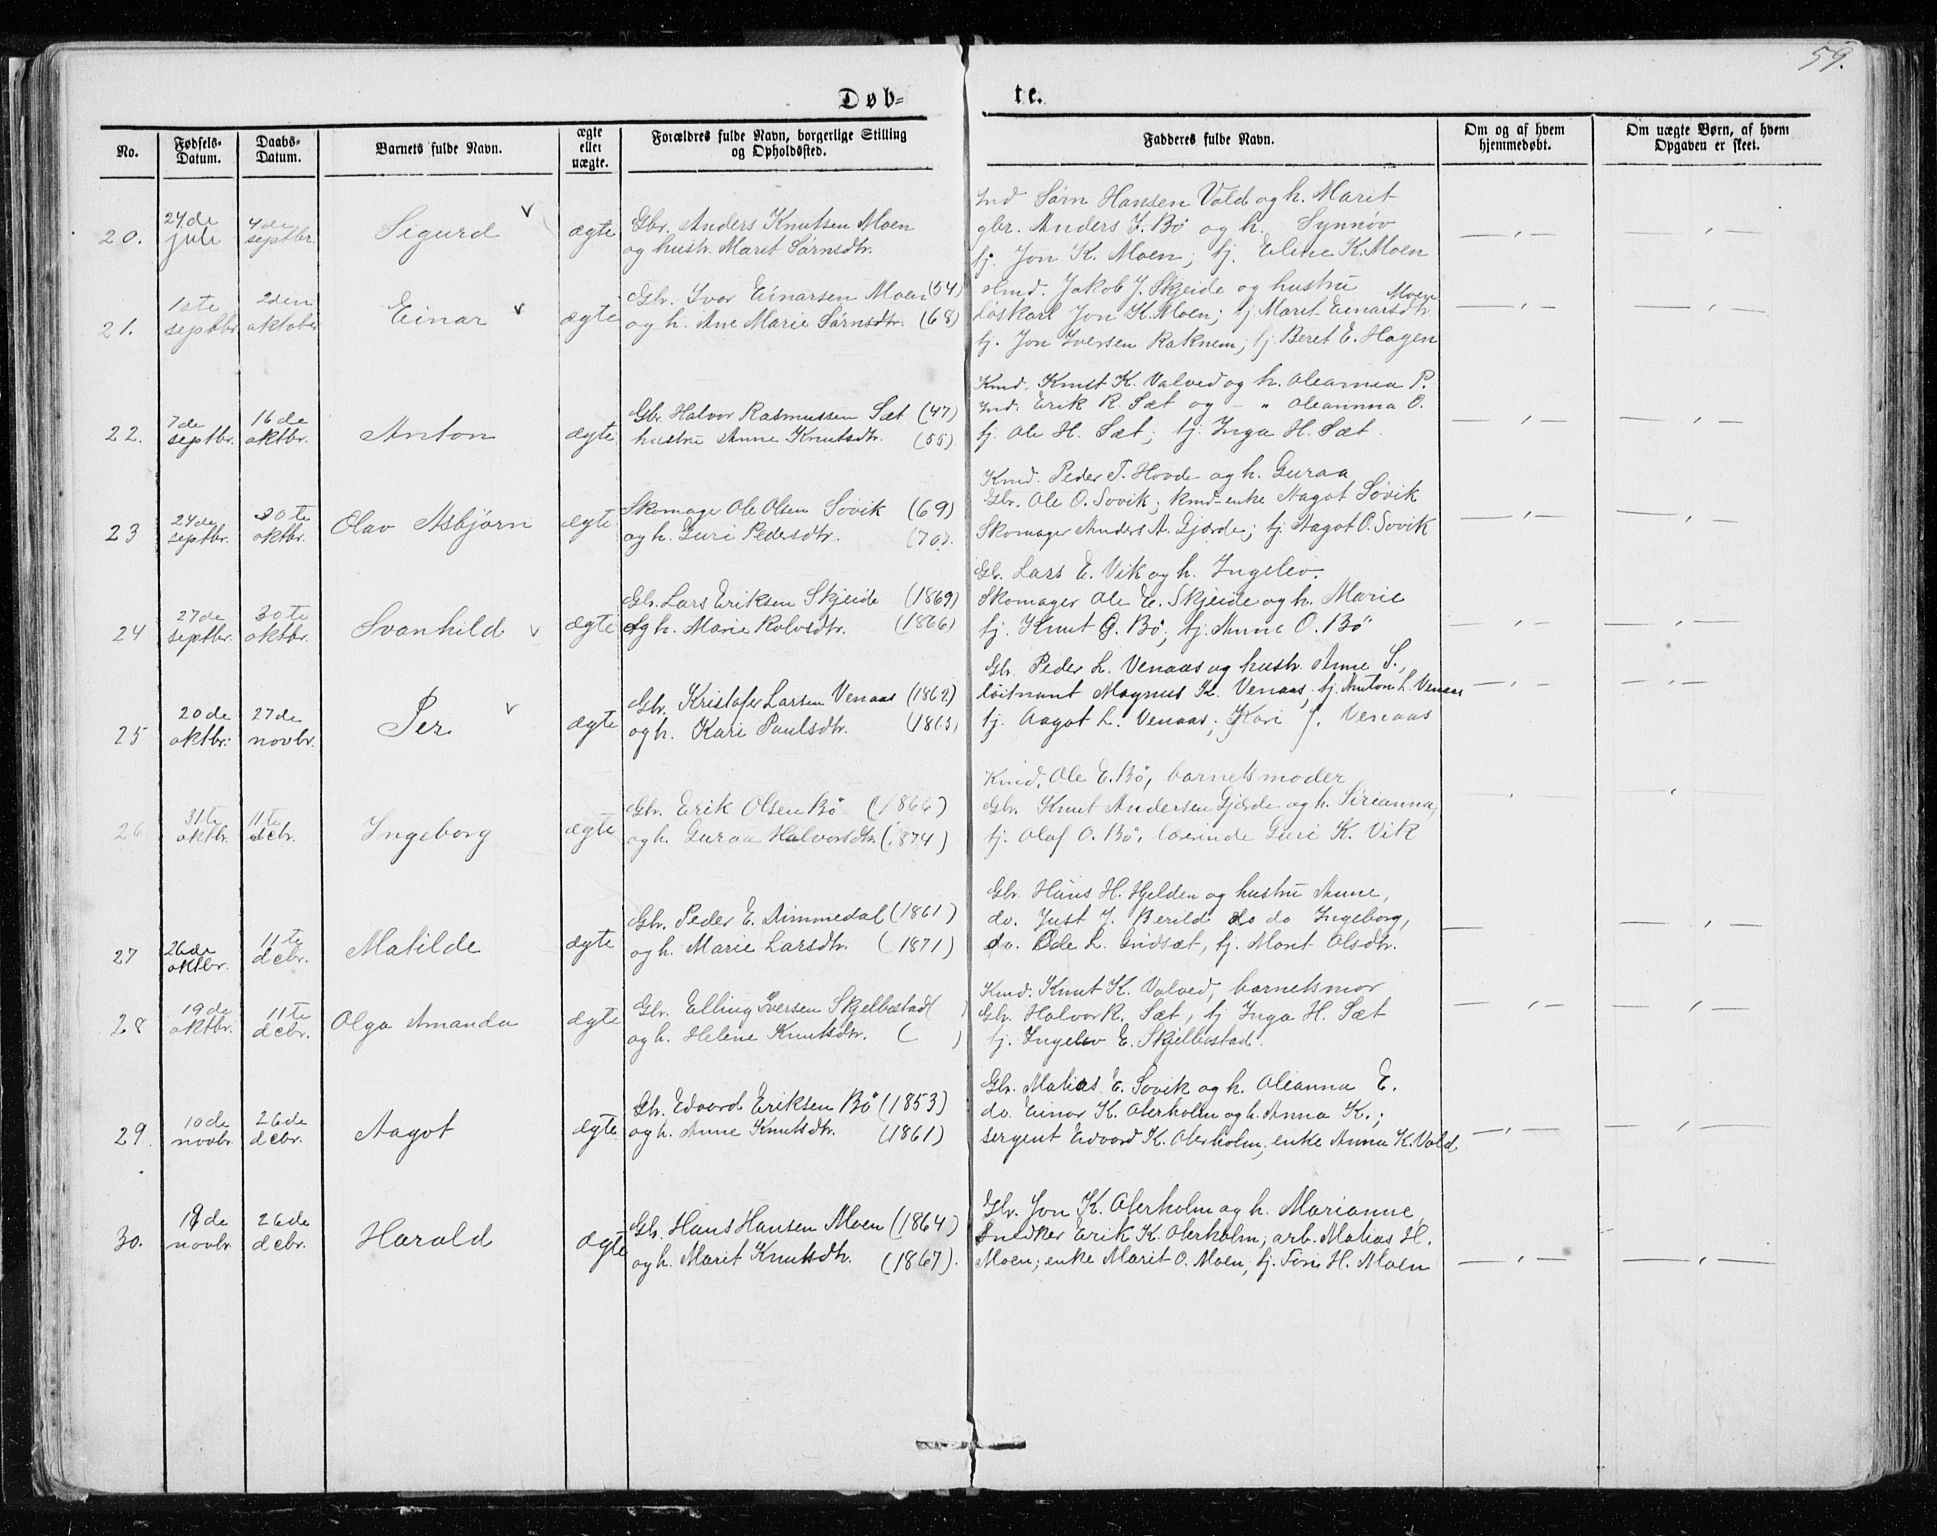 59.
Døb= te.
No. Fødsels-Datum. Daabs-Datum. Barnets fulde Navn. ægte eller uægte. Forældres fulde Navn, borgerlige Stilling og Opholdssted. Fadderes fulde Navn. Om og af hvem hjemmedøbt. Om uægte Børn, af hvem Opgaven er skeet.
Ind Sørn Hansen Vold og h. Marit
20. 24de juli 4de septbr. Sigurd ægte Gbr. Anders Knutsen Moen gbr. Anders J. Bö og h. Synnöv —„— —„—
og hustr. Marit Sørnsdtr. tj. Jon K. Moen; tj. Eline K. Moen
21. 1ste septbr 2den oktober Einar ægte Gbr. Ivar Einarsen Moen (64) Jakob J. Skjeide og hustru
og h. Ane Marie Sørnsdtr. (68) Løskarl Jon K. Moen; tj. Marit Einarsdtr. Moen —„— —„—
tj. Jon Iversen Raknem; tj. Beret E. Hagen
Kmd. Knut K. Valved og h. Oleanna P.
22. 7de septbr. 16de oktbr. Anton ægte Gbr. Halvor Rasmussen Sæt (47) Ind. Erik R. Sæt og - „ Oleanna O. —„— —„—
hustru Anne Knutsdtr. (55) tj. Ole H. Sæt; tj. Inga H. Sæt
Kmd. Peder T. Hovde og h. Guraa
23 24de septbr. 30te oktbr. Olav Asbjørn ægte Skomager Ole Olsen Sovik (69) Gbr. Ole O. Sovik; kmd-enke Aagot Søvik —„— —„—
og h. Guri Pedersdtr. (70). Skomager Anders A. Gjærde; tj. Aagot O. Sovik
Gbr. Lars E. Vik og h. Ingelev.
24 27de septbr. 30te oktbr. Svanhild ægte Gbr. Lars Eriksen Skjeide (1869) Skomager Ole E. Skjeide og h. Marie —„— —„—
og h. Marie Rolvsdtr. (1866) tj. Knut O. Bö; tj. Anne O. Bö
Gbr. Peder L. Venaas og hustr. Anne S.,
25 20de oktbr. 27de novbr. Per ægte Gbr. Kristofer Larsen Venaas (1862) løitnant Magnus K. Venaas, tj. Anton L. Venaas —„— —„—
og h. Kari Paulsdtr. (1863) tj. Aagot L. Venaas; Kari J. Venaas
Kmd. Ole E. Bö, barnets moder
26 31te oktbr. 11te dcbr. Ingeborg ægte Gbr. Erik Olsen Bö (1866) Gbr. Knut Andersen Gjærde og h. Sirianna,
og h. Guraa Halvorsdtr. (1874) tj. Olaf O. Bö, lærerinde Guri K. Vik
Gbr. Hans H. Hjelden og hustru Anne,
27 26de oktbr. 11te dcbr. Matilde ægte Gbr. Peder E. Dimmedal (1861) do. Just J. Berild do do Ingeborg, —„—
og h. Marie Larsdtr. (1871) do. Ole L. Gridsæt, tj. Marit Olsdtr.
Kmd. Knut K. Valved, barnets mor
28 19de oktbr. 11te dcbr. Olga Amanda ægte Gbr. Elling Iversen Skjelbostad ( ) Gbr. Halvor R. Sæt, tj Inga H. Sæt —„— —„—
og h. Helene Knutsdtr. ( ) tj. Ingelev E. Skjelbostad.
Gbr. Matias E. Sovik og h. Oleanna E.
29. 10de novbr. 26de dcbr. Aagot ægte Gbr. Edvard Eriksen Bö (1853) do. Einar K. Oterholm og h. Anna K.; —„— —„—
og h. Anne Knutsdtr. (1861) sergent Edvard K. Oterholm, enke Anna K. Vold
Gbr. Jon K. Oterholm og h. Marianne,
30. 19de novbr. 26de dcbr. Harald ægte Gbr. Hans Hansen Moen (1864) Snedker Erik K. Oterholm; arb. Matias H.
og h. Marit Knutsdtr. (1867). Moen; enke Marit O. Moen, tj. H. Moen —„— —„—